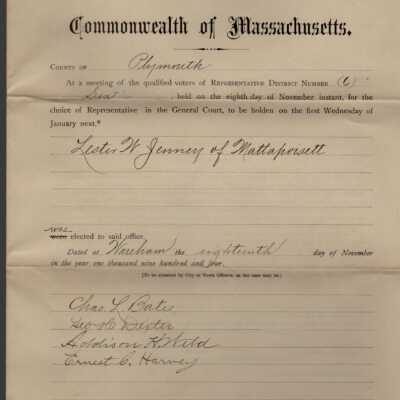 Commonwealth of Massachusetts.
COUNTY OF Plymouth
At a meeting of the qualified voters of REPRESENTATIVE DISTRICT NUMBER (6)
held on the eighth day of November instant, for the
choice of Representative in the General Court, to be holden on the first Wednesday of
January next.*
Lester W Jenney of Mattapoisett
was
were elected to said office.
Dated at Wareham the eighteenth day of November
in the year one thousand nine hundred and four.
[To be attested by City or Town Officers, as the case may be.]
Chas. L. Bates
Geo. H. Dexter
Addison H. Wild
Ernest C. Harvey